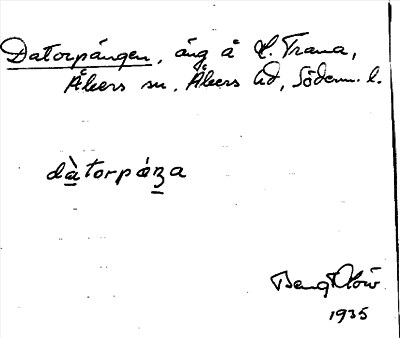 Datorpängen, äng å L. Trana,
Åkers sn, Åkers hd, Söderm. l.
dàtorpáŋa
Bengt Olów
1935